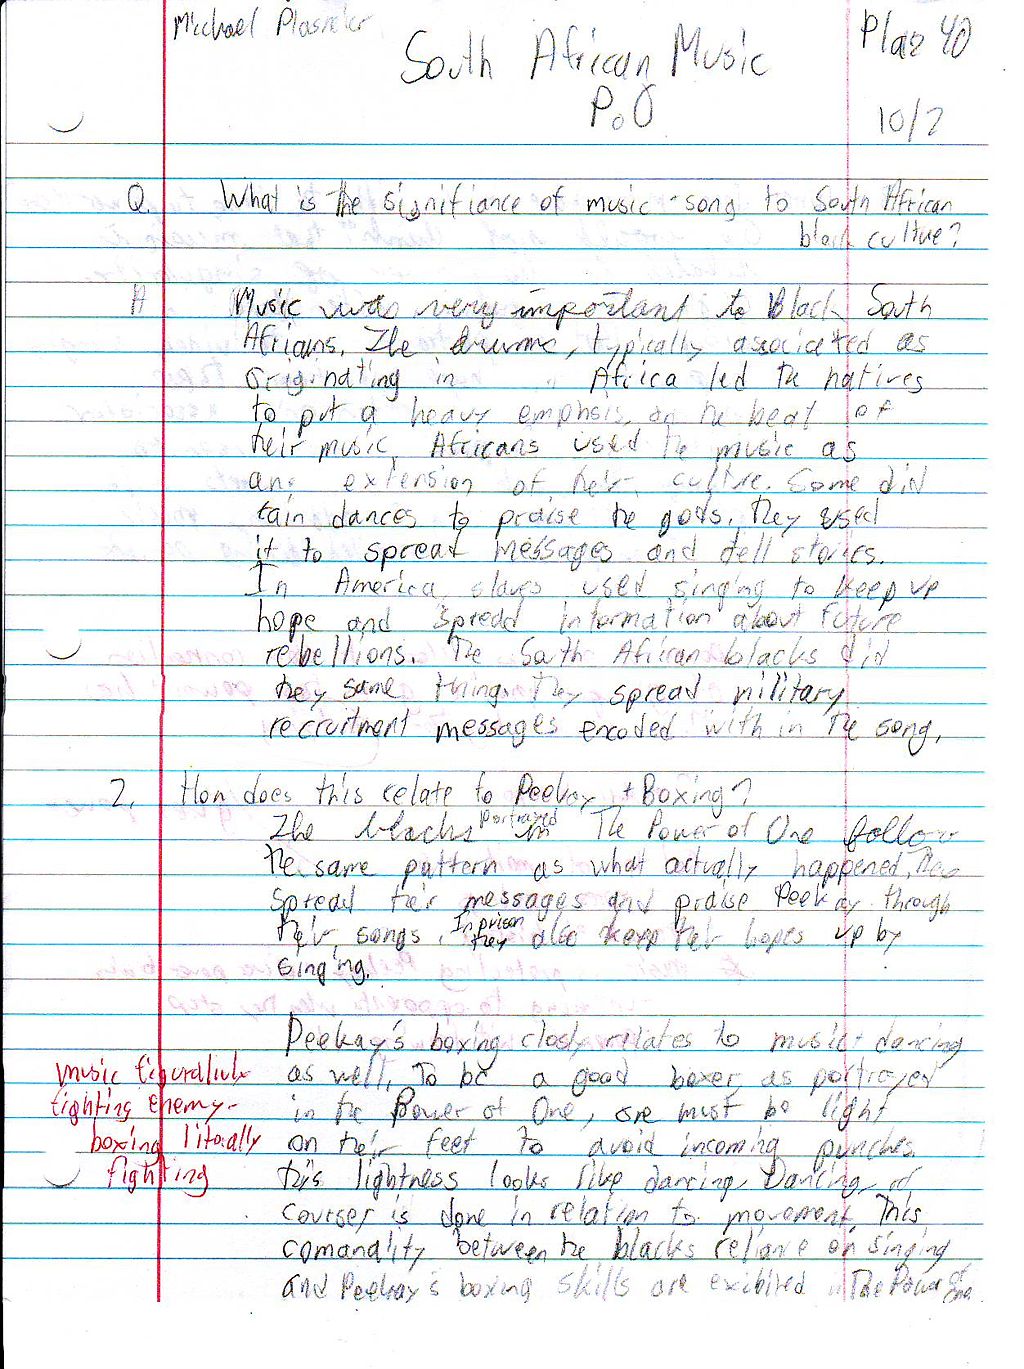 Michael Plasmeier
Plaz 40
South African Music
P.O
10/2
Q. What is the signifiance of music + song to South African
black culture?
A Music was very important to Black South
Africans. The drums, typically associated as
originating in Africa led the natives
to put a heavy emphsis on the beat of
their music. Africans used the music as
an extension of their culture. Some did
rain dances to praise the gods. They used
it to spread messages and tell stories.
In America slaves used singing to keep up
hope and spread information about future
rebellions. The South African blacks did
they same thing. They spread military
recruitment messages encoded with in the song.
2. How does this relate to Peekay + Boxing?
The blacks portrayed in The Power of One follow
the same pattern as what actually happened. They
spread their messages and praise Peekay through
their songs. In prison they also keep their hopes up by
singing.
Peekay's boxing closly relates to music + dancing
as well. To be a good boxer, as portrayed
in the Power of One, one must be light
on their feet to avoid incoming punches.
this lightness looks like dancing. Dancing, of
course, is done in relation to movement. This
comanality between the blacks reliance on singing
and Peekay's boxing skills are exibited in The Power of One.
music figurativly
fighting enemy -
boxing literally
fighting